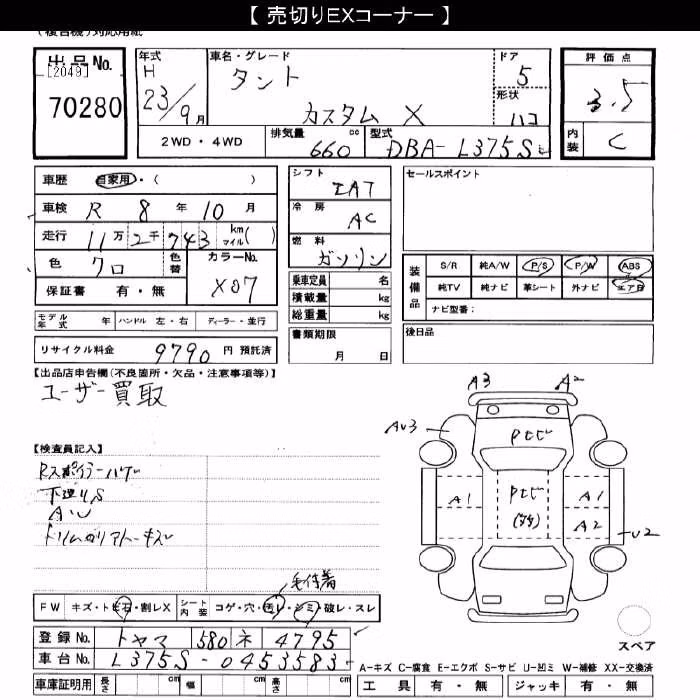 【 売切りEXコーナー 】
(複合機)対応用紙
出品No.
[2049]
70280
年式
H
23/9月
車名・グレード
タント
カスタム X
ドア
5
形状
ハコ
評価点
3.5
内装
C
2WD・4WD
排気量
660
cc
型式
DBA-L375S
車歴
自家用・( )
車検 R 8 年 10 月
走行 11万 2千 743 km マイル( )
色 クロ
色替
カラーNo.
X07
保証書 有・無
シフト
IAT
冷房
AC
燃料
ガソリン
乗車定員 名
積載量 kg
総重量 kg
書類期限
月 日
セールスポイント
装備品
S/R 純A/W P/S P/W ABS
純TV 純ナビ 革シート 外ナビ エアB
ナビ型番:
後日品
モデル年式 年 ハンドル 左・右 ディーラー・並行
リサイクル料金 9790 円 預託済
【出品店申告欄(不良箇所・欠品・注意事項等)】
ユーザー買取
【検査員記入】
Rスポイラーハゲ
下廻りS
AU
A3
A2
AU3
Pセビ
A1
Pセビ
A1
A2
U2
毛付着
FW キズ・トビ石・割レX
シート内装 コゲ・穴・汚レ・シミ・破レ・スレ
登録No. トヤマ 580 ネ 4795
車台No. L375S-0453583
車庫証明用 長さ cm 幅 cm 高さ cm
スペア
A-キズ C-腐食 E-エクボ S-サビ U-凹ミ W-補修 XX-交換済
工具 有・無 ジャッキ 有・無